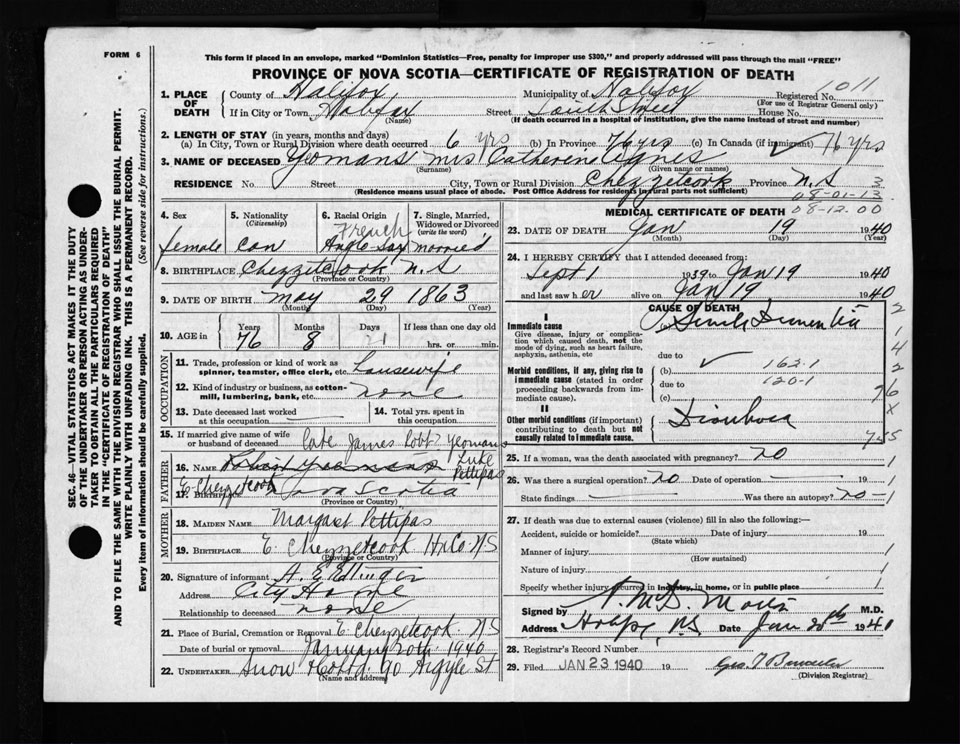 FORM 6
This form if placed in an envelope, marked "Dominion Statistics—Free, penalty for improper use $300," and properly addressed will pass through the mail "FREE"
PROVINCE OF NOVA SCOTIA—CERTIFICATE OF REGISTRATION OF DEATH
SEC. 46—VITAL STATISTICS ACT MAKES IT THE DUTY
OF THE UNDERTAKER OR PERSON ACTING AS UNDER-
TAKER TO OBTAIN ALL THE PARTICULARS REQUIRED
IN THE "CERTIFICATE OF REGISTRATION OF DEATH"
AND TO FILE THE SAME WITH THE DIVISION REGISTRAR WHO SHALL ISSUE THE BURIAL PERMIT.
WRITE PLAINLY WITH UNFADING INK. THIS IS A PERMANENT RECORD.
Every item of information should be carefully supplied. (See reverse side for instructions.)
1. PLACE OF DEATH County of Halifax Municipality of Halifax Registered No. 1011
(For use of Registrar General only)
If in City or Town Halifax Street South Street House No.
(Name) (If death occurred in a hospital or institution, give the name instead of street and number)
2. LENGTH OF STAY (in years, months and days)
(a) In City, Town or Rural Division where death occurred 6 yrs (b) In Province 76 yrs (c) In Canada (if immigrant) ✓ 76 yrs
3. NAME OF DECEASED Yeomans Mrs Catherine Agnes
(Surname) (Given name or names)
RESIDENCE No. Street City, Town or Rural Division Chezzetcook Province N.S
(Residence means usual place of abode. Post Office Address for residents in rural parts not sufficient)
08-01-13
08-12.00
4. Sex 5. Nationality (Citizenship) 6. Racial Origin 7. Single, Married, Widowed or Divorced (write the word)
French
female Can Anglo Sax married
8. BIRTHPLACE Chezzetcook N.S
(Province or Country)
9. DATE OF BIRTH May 29 1863
(Month) (Day) (Year)
10. AGE in Years Months Days If less than one day
76 8 21 hrs. or min.
OCCUPATION
11. Trade, profession or kind of work as spinner, teamster, office clerk, etc. Housewife
12. Kind of industry or business, as cotton-mill, lumbering, bank, etc. none
13. Date deceased last worked at this occupation 14. Total yrs. spent in this occupation
15. If married give name of wife or husband of deceased Late James Robt Yeomans
FATHER
16. NAME Robert Yeomans Luke Pettipas
17. BIRTHPLACE E Chezzetcook Nova Scotia
(Province or Country)
MOTHER
18. MAIDEN NAME Margaret Pettipas
19. BIRTHPLACE E. Chezzetcook Hx Co NS
(Province or Country)
20. Signature of informant A. E. Ettinger
Address City Home
Relationship to deceased none
21. Place of Burial, Cremation or Removal E Chezzetcook NS
Date of burial or removal January 20th 1940
22. UNDERTAKER Snow 90 Argyle St
(Name and address)
MEDICAL CERTIFICATE OF DEATH
23. DATE OF DEATH Jan 19 1940
(Month) (Day) (Year)
24. I HEREBY CERTIFY that I attended deceased from:
Sept 1 1939 to Jan 19 1940
and last saw her alive on Jan 19 1940
CAUSE OF DEATH
I
Immediate cause Senile Dementia
Give disease, injury or complication which caused death, not the mode of dying, such as heart failure, asphyxia, asthenia, etc
due to
Morbid conditions, if any, giving rise to immediate cause (stated in order proceeding backwards from immediate cause).
(b) ✓ 162.1
due to 120-1
(c)
II
Other morbid conditions (if important) contributing to death but not causally related to immediate cause. Diarrhoea
2
1
4
2
76
x
745
25. If a woman, was the death associated with pregnancy? no 1
26. Was there a surgical operation? no Date of operation — 1
State findings — Was there an autopsy? no 1
27. If death was due to external causes (violence) fill in also the following:—
Accident, suicide or homicide? Date of injury 19
(State which)
Manner of injury 1
(How sustained)
Nature of injury 1
Specify whether injury occurred in industry, in home, or in public place 1
Signed by M.D.
Address Halifax N.S Date Jan 20th 1940
28. Registrar's Record Number
29. Filed JAN 23 1940 19 Geo. T
(Division Registrar)